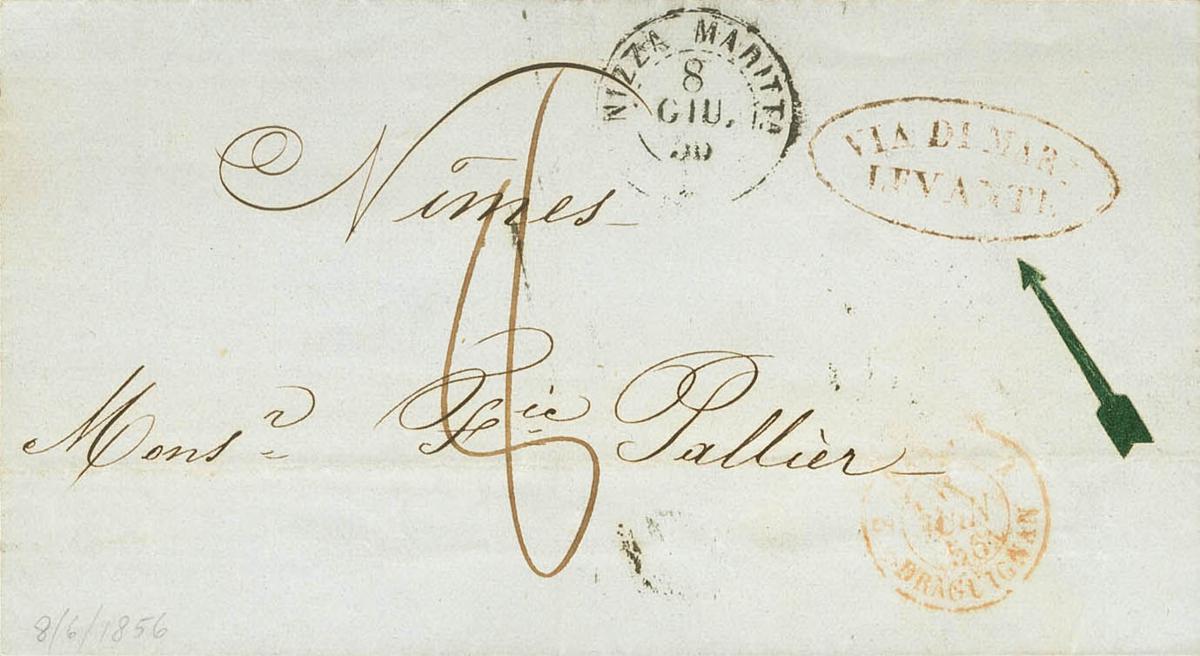 NIZZA MARITTA
8
GIU.
VIA DI MARE
LEVANTE
Nîmes
Mons.r F.ic Pallièr
JUIN
56
DRAGUIGNAN
8/6/1856